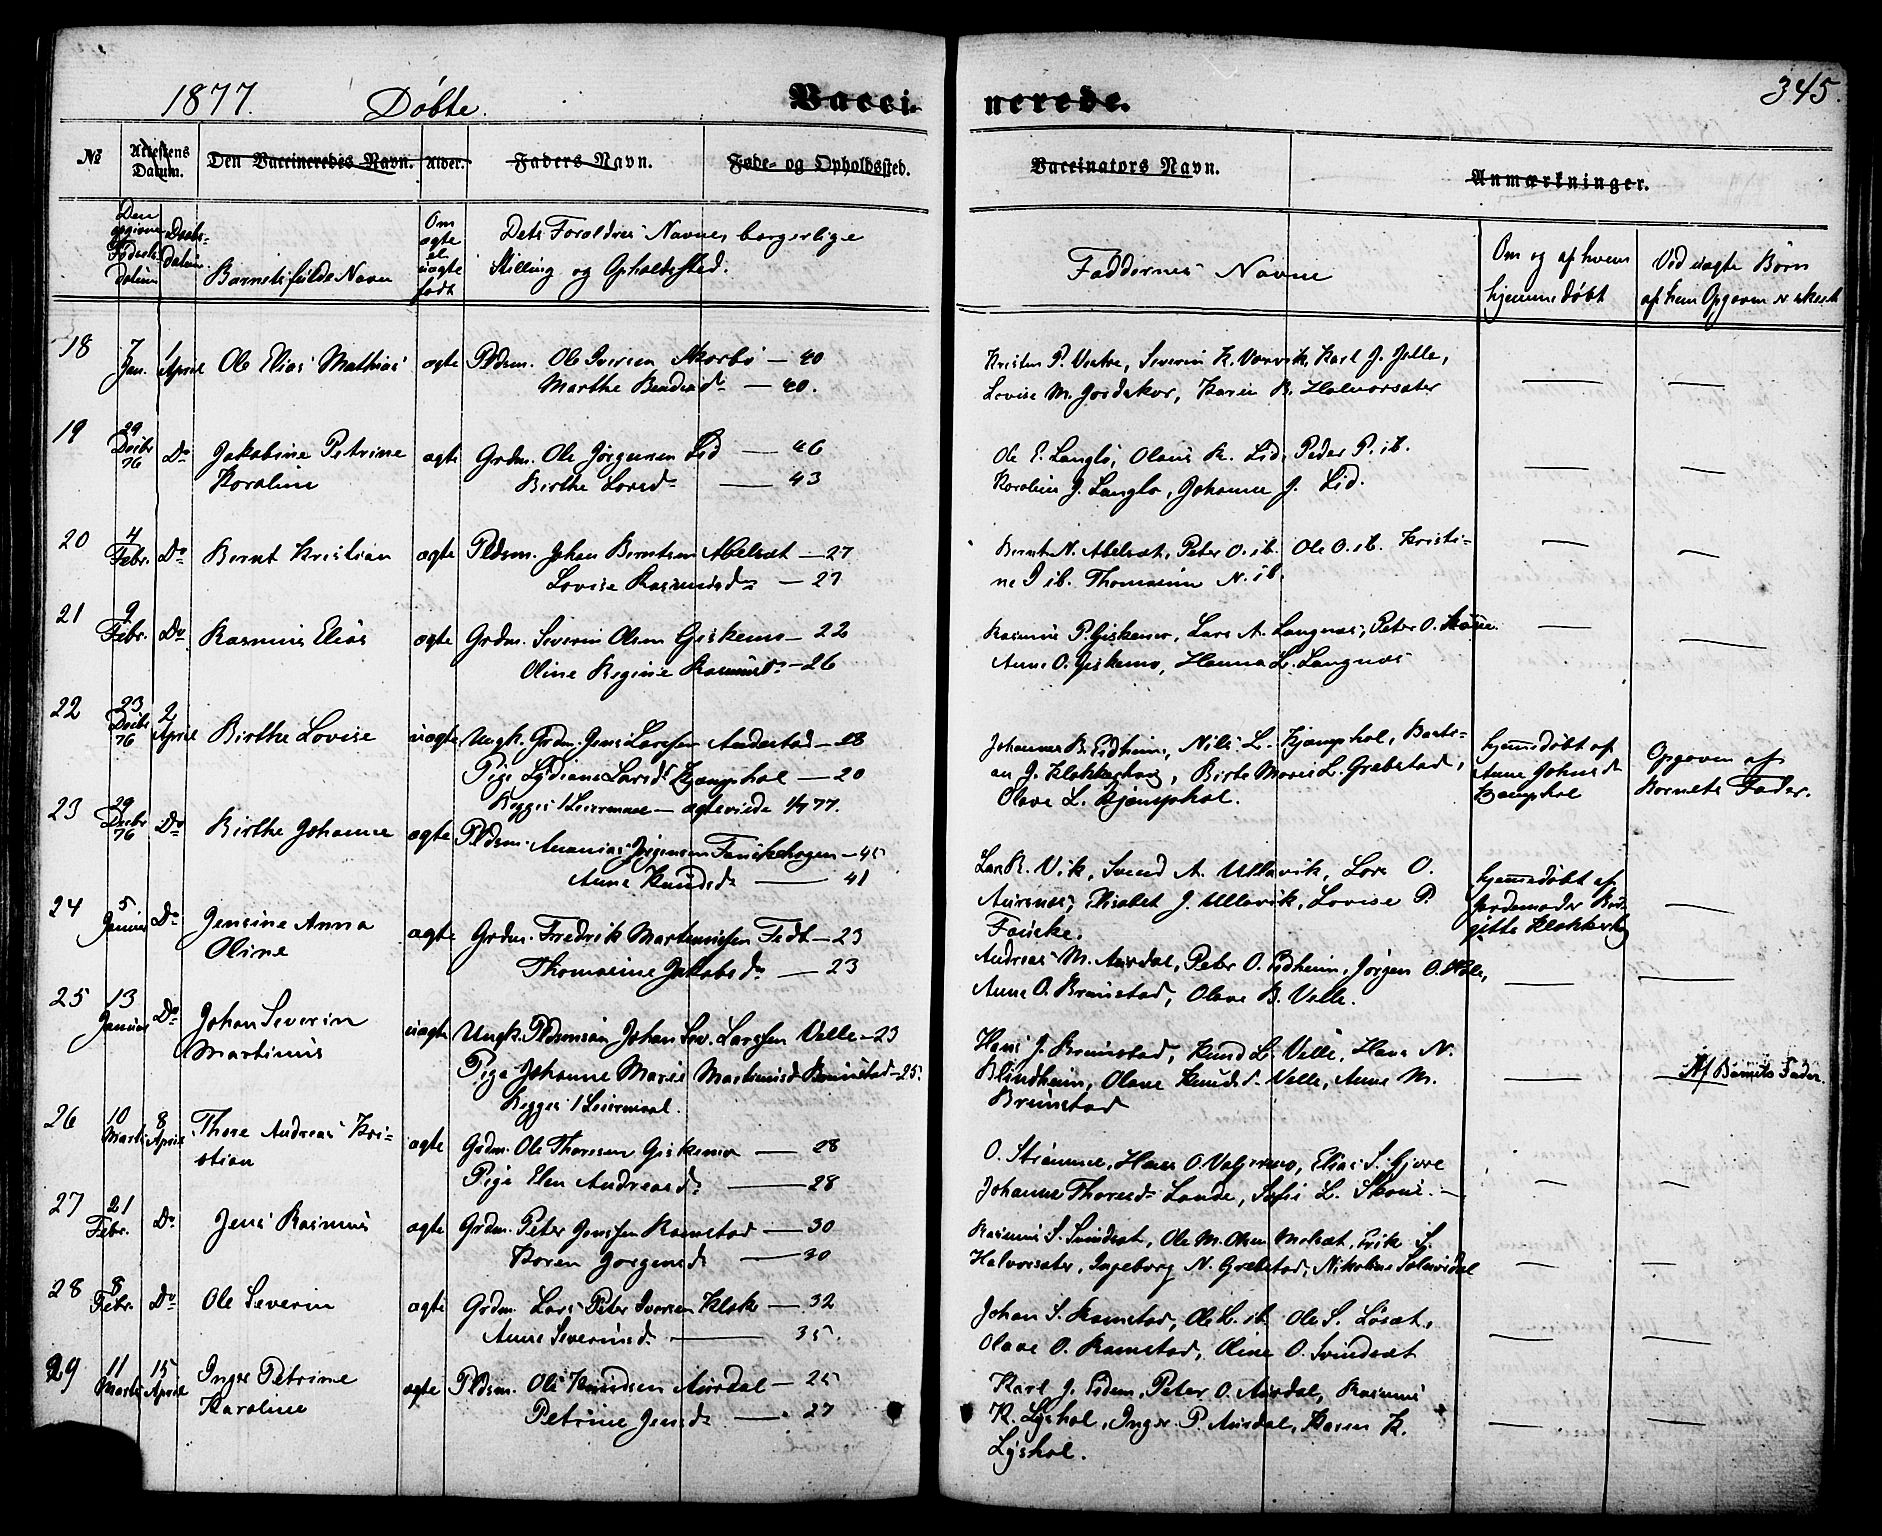 1877. Døbte. Vacci- nerede. 345.
№ Attestens Datum. Den Vaccineredes Navn. Alder. Faders Navn. Føde- og Opholdssted. Vaccinators Navn. Anmærkninger.
Den opgivne Fødsels-datum Daabs-datum. Barnets fulde Navn Om ægte el. uægte født Dets Forældres Navne, borgerlige Stilling og Opholdssted. Faddernes Navne Om og af hvem hjemmedøbt Ved uægte Børn af hvem Opgaven er skeet
18 7 Jan. 1 April Ole Elias Mathias ægte Pldsm. Ole Iversen Skorbø — 40
Marthe Bendiksd. — 40.
Kristen P. Vestre, Severin K. Varvik, Karl J. Jelle,
Lovise M. Jordskar, Karen B. Halvorsæter
19 29 Decbr 76 Do Jakobine Petrine ægte Grdm. Ole Jørgensen Lid — 46
Karoline Birthe Larsd. — 43
Ole E. Langlo, Olaus K. Lid, Peder P. ib.
Karoline J. Langlo, Johanne J. Lid.
20 4 Febr. Do Bernt Kristian ægte Pldsm. Johan Berntsen Abelsæt — 27
Lovise Rasmusd. — 27
Bernt N. Abelsæt, Peter O. ib. Ole O. ib. Kristi-
ne I ib. Thomasine N. ib.
21 9 Febr. Do Rasmus Elias ægte Grdm. Severin Olsen Giskemo — 22
Oline Regine Rasmusd. — 26
Rasmus P. Giskemo, Lars A. Langnæs, Peter O. Skoue.
Anne O. Giskemo, Hanna L. Langnæs
22 23 Decbr 76 2 April Birthe Lovise uægte Ungk. Grdm. Jens Larssen Andestad — 28
Pige Lydiane Larsd. Kjæmphol — 20
Begges 1 Leiermaal — ægteviede 1/4 77.
Johannes B. Eidheim, Nils L. Kjæmphol, Basti-
an J. Klokkerhaug, Birte Marie L. Grebstad,
Olave L. Kjæmphol.
hjemmedøbt af
Anne Johnsd
Kjæmphol
Opgaven af
Barnets Fader.
23 29 Decbr 76 Do Birthe Johanne ægte Pldsm. Ananias Jørgensen Fauskehagen — 45
Anne Knudsd. — 41
Lars R. Vik, Svend A. Ullavik, Lars O.
Aursnes, Elisabet J. Ullavik, Lovise P.
Fauske.
hjemmedøbt af
Jordemoder Bir-
gitte Klokkerhg
24 5 Januar Do Jensine Anna ægte Grdm. Fredrik Martinussen Fedt — 23
Oline Thomasine Jakobsd. — 23
Andreas M. Aurdal, Peter O. Eidheim, Jørgen O. Hole,
Anne O. Brunstad, Olave B. Velle.
25 13 Januar Do Johan Severin uægte Ungk. Pldsmsøn Johan Sev. Larssen Velle — 23
Martinus Pige Johanne Marie Martinusd. Brunstad — 25.
Begges 1 Leiermaal.
Hans J. Brunstad, Knud L. Velle, Hans N.
Blindheim, Olave Knudsd. Velle, Anne M.
Brunstad
Af Barnets Fader.
26 10 Marts 8 April Thore Andreas Kri-
stian ægte Grdm. Ole Thoresen Giskemo — 28
Pige Elen Andreasd. — 28
O. Strømme, Hans O. Valgermo, Elias S. Gjære
Johanne Thoresd. Lande, Sofie L. Skoue. —
27 21 Febr. Do Jens Rasmus ægte Grdm. Peter Jenssen Ramstad — 30
Karen Jørgensd. — 30
Rasmus S. Svindsæt, Ole M. Olsen Melsæt, Erik S.
Halvorsæter, Ingeborg N. Grebstad, Nikoline Solnørdal
28 8 Febr. Do Ole Severin ægte Grdm. Lars Peter Iversen Klok — 32
Anne Severinsd. — 35.
Johan S. Ramstad, Ole L. ib. Ole S. Løsæt,
Olave O. Ramstad, Oline O. Svindsæt
29 11 Marts 15 April Inger Petrine ægte Pldsm. Ole Knudsen Aurdal — 25
Karoline Petrine Jensd. — 27
Karl J. Eidem, Peter O. Aurdal, Rasmus
K. Lyshol, Inger P. Aurdal, Karen K.
Lyshol.